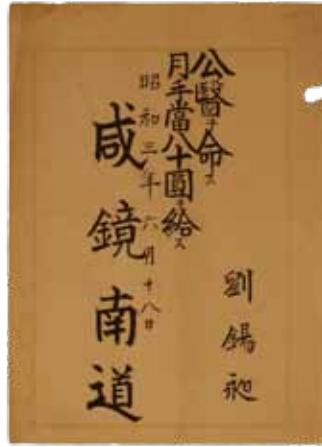 劉錫昶
公醫ヲ命ス
月手當八十圓ヲ給ス
昭和三年六月十八日
咸鏡南道